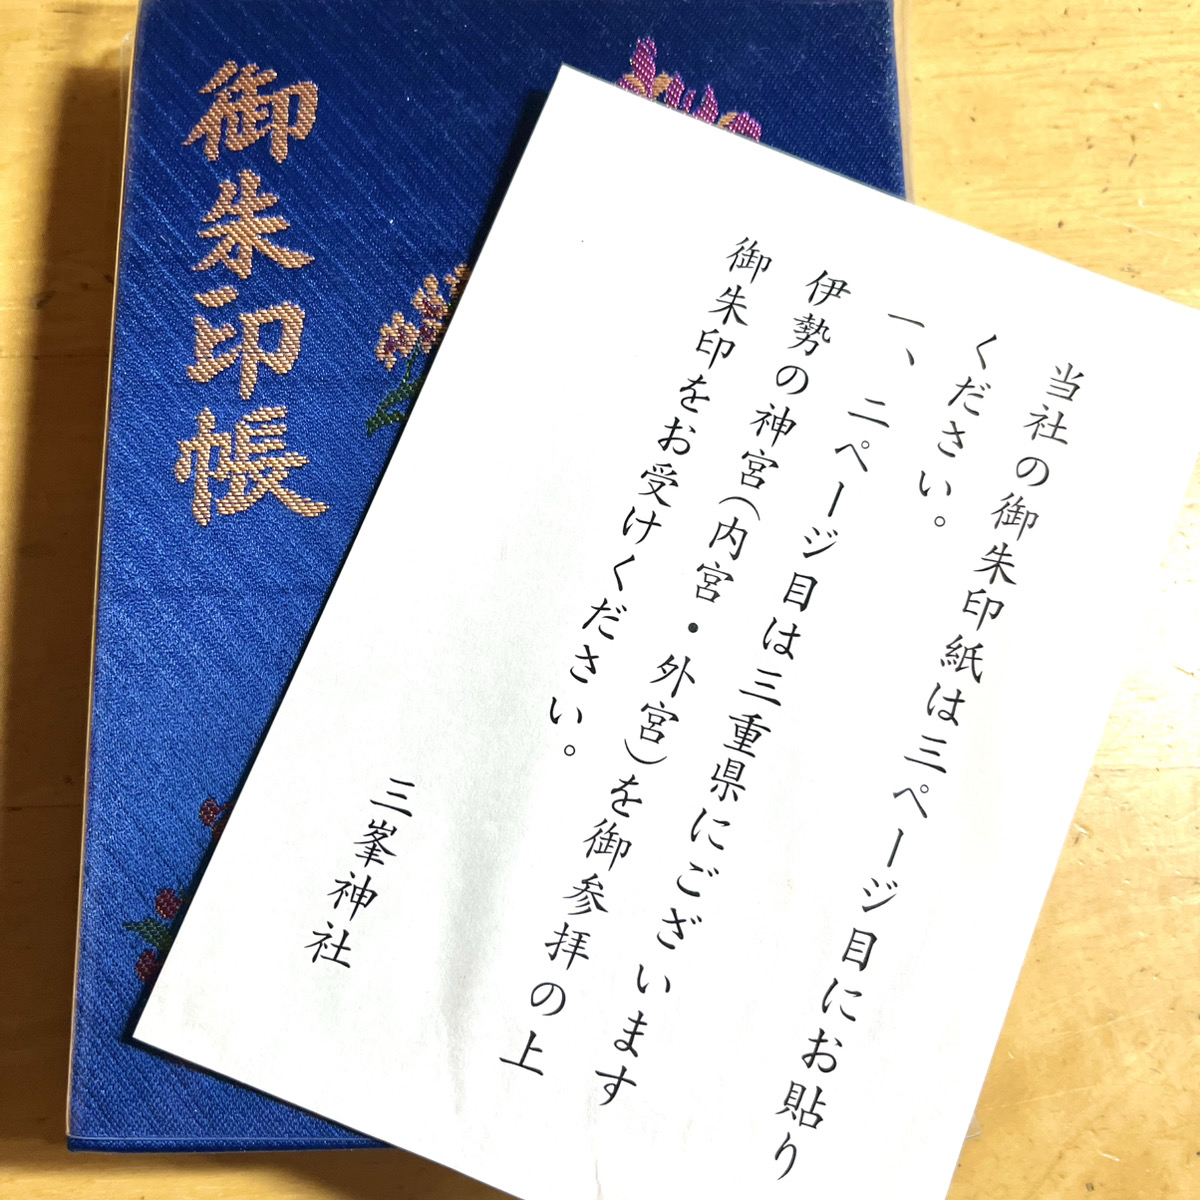 御朱印帳
当社の御朱印紙は三ページ目にお貼り
ください。
一、二ページ目は三重県にございます
伊勢の神宮（内宮・外宮）を御参拝の上
御朱印をお受けください。
三峯神社